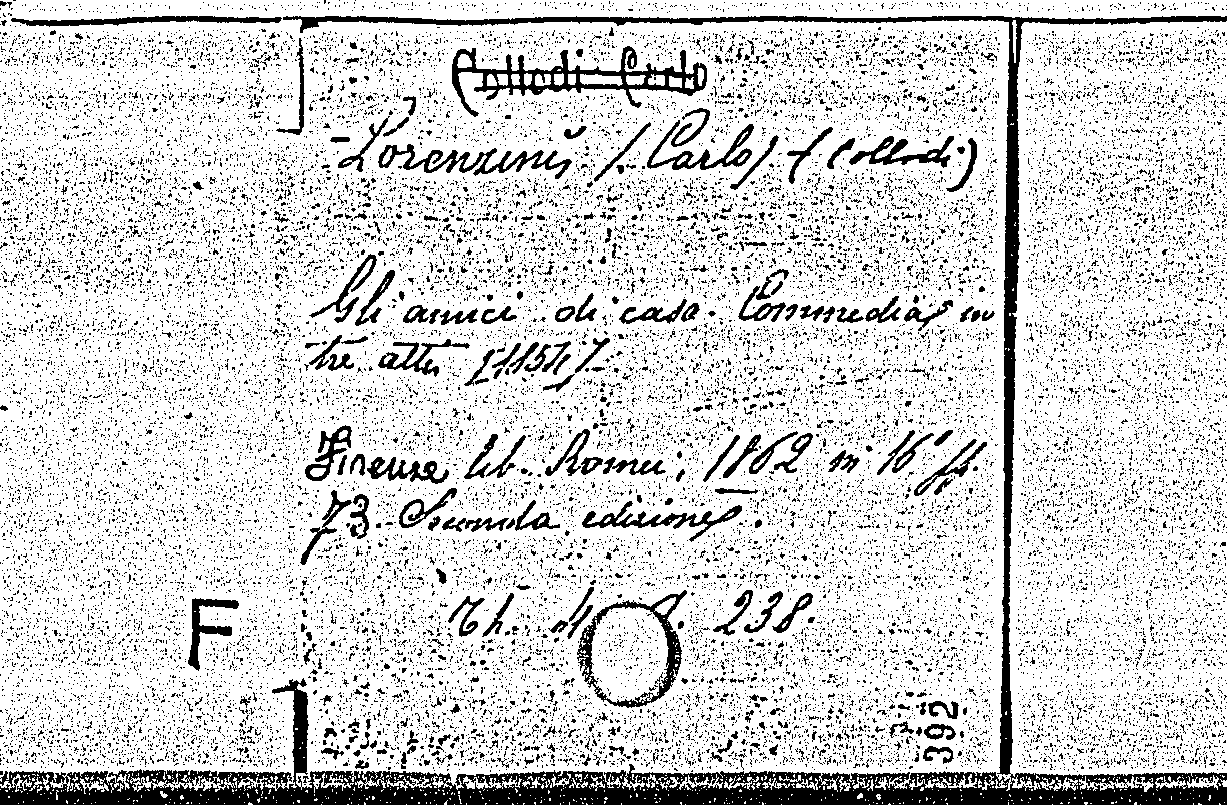 Collodi Carlo
Lorenzini (Carlo) (Collodi)
Gli amici di casa. Commedia in
tre atti
Firenze lib. Romei, 1862 in 16°
73. Seconda edizione.
238.
F
392